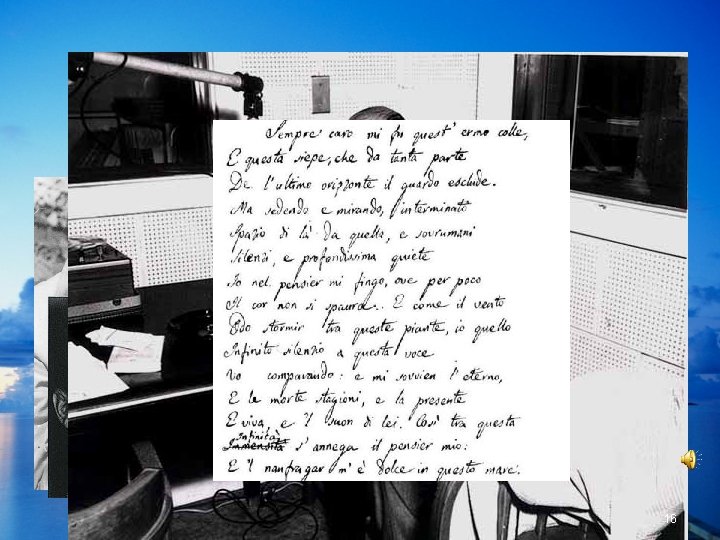 Sempre caro mi fu quest'ermo colle,
E questa siepe, che da tanta parte
De l'ultimo orizzonte il guardo esclude.
Ma sedendo e mirando, l'interminato
Spazio di là da quella, e sovrumani
Silenzi, e profondissima quiete
Io nel pensier mi fingo, ove per poco
Il cor non si spaura. E come il vento
Odo stormir tra queste piante, io quello
Infinito silenzio a questa voce
Vo comparando: e mi sovvien l'eterno,
E le morte stagioni, e la presente
E viva, e 'l suon di lei. Così tra questa
Infinità
Immensità s'annega il pensier mio:
E 'l naufragar m'è dolce in questo mare.
16